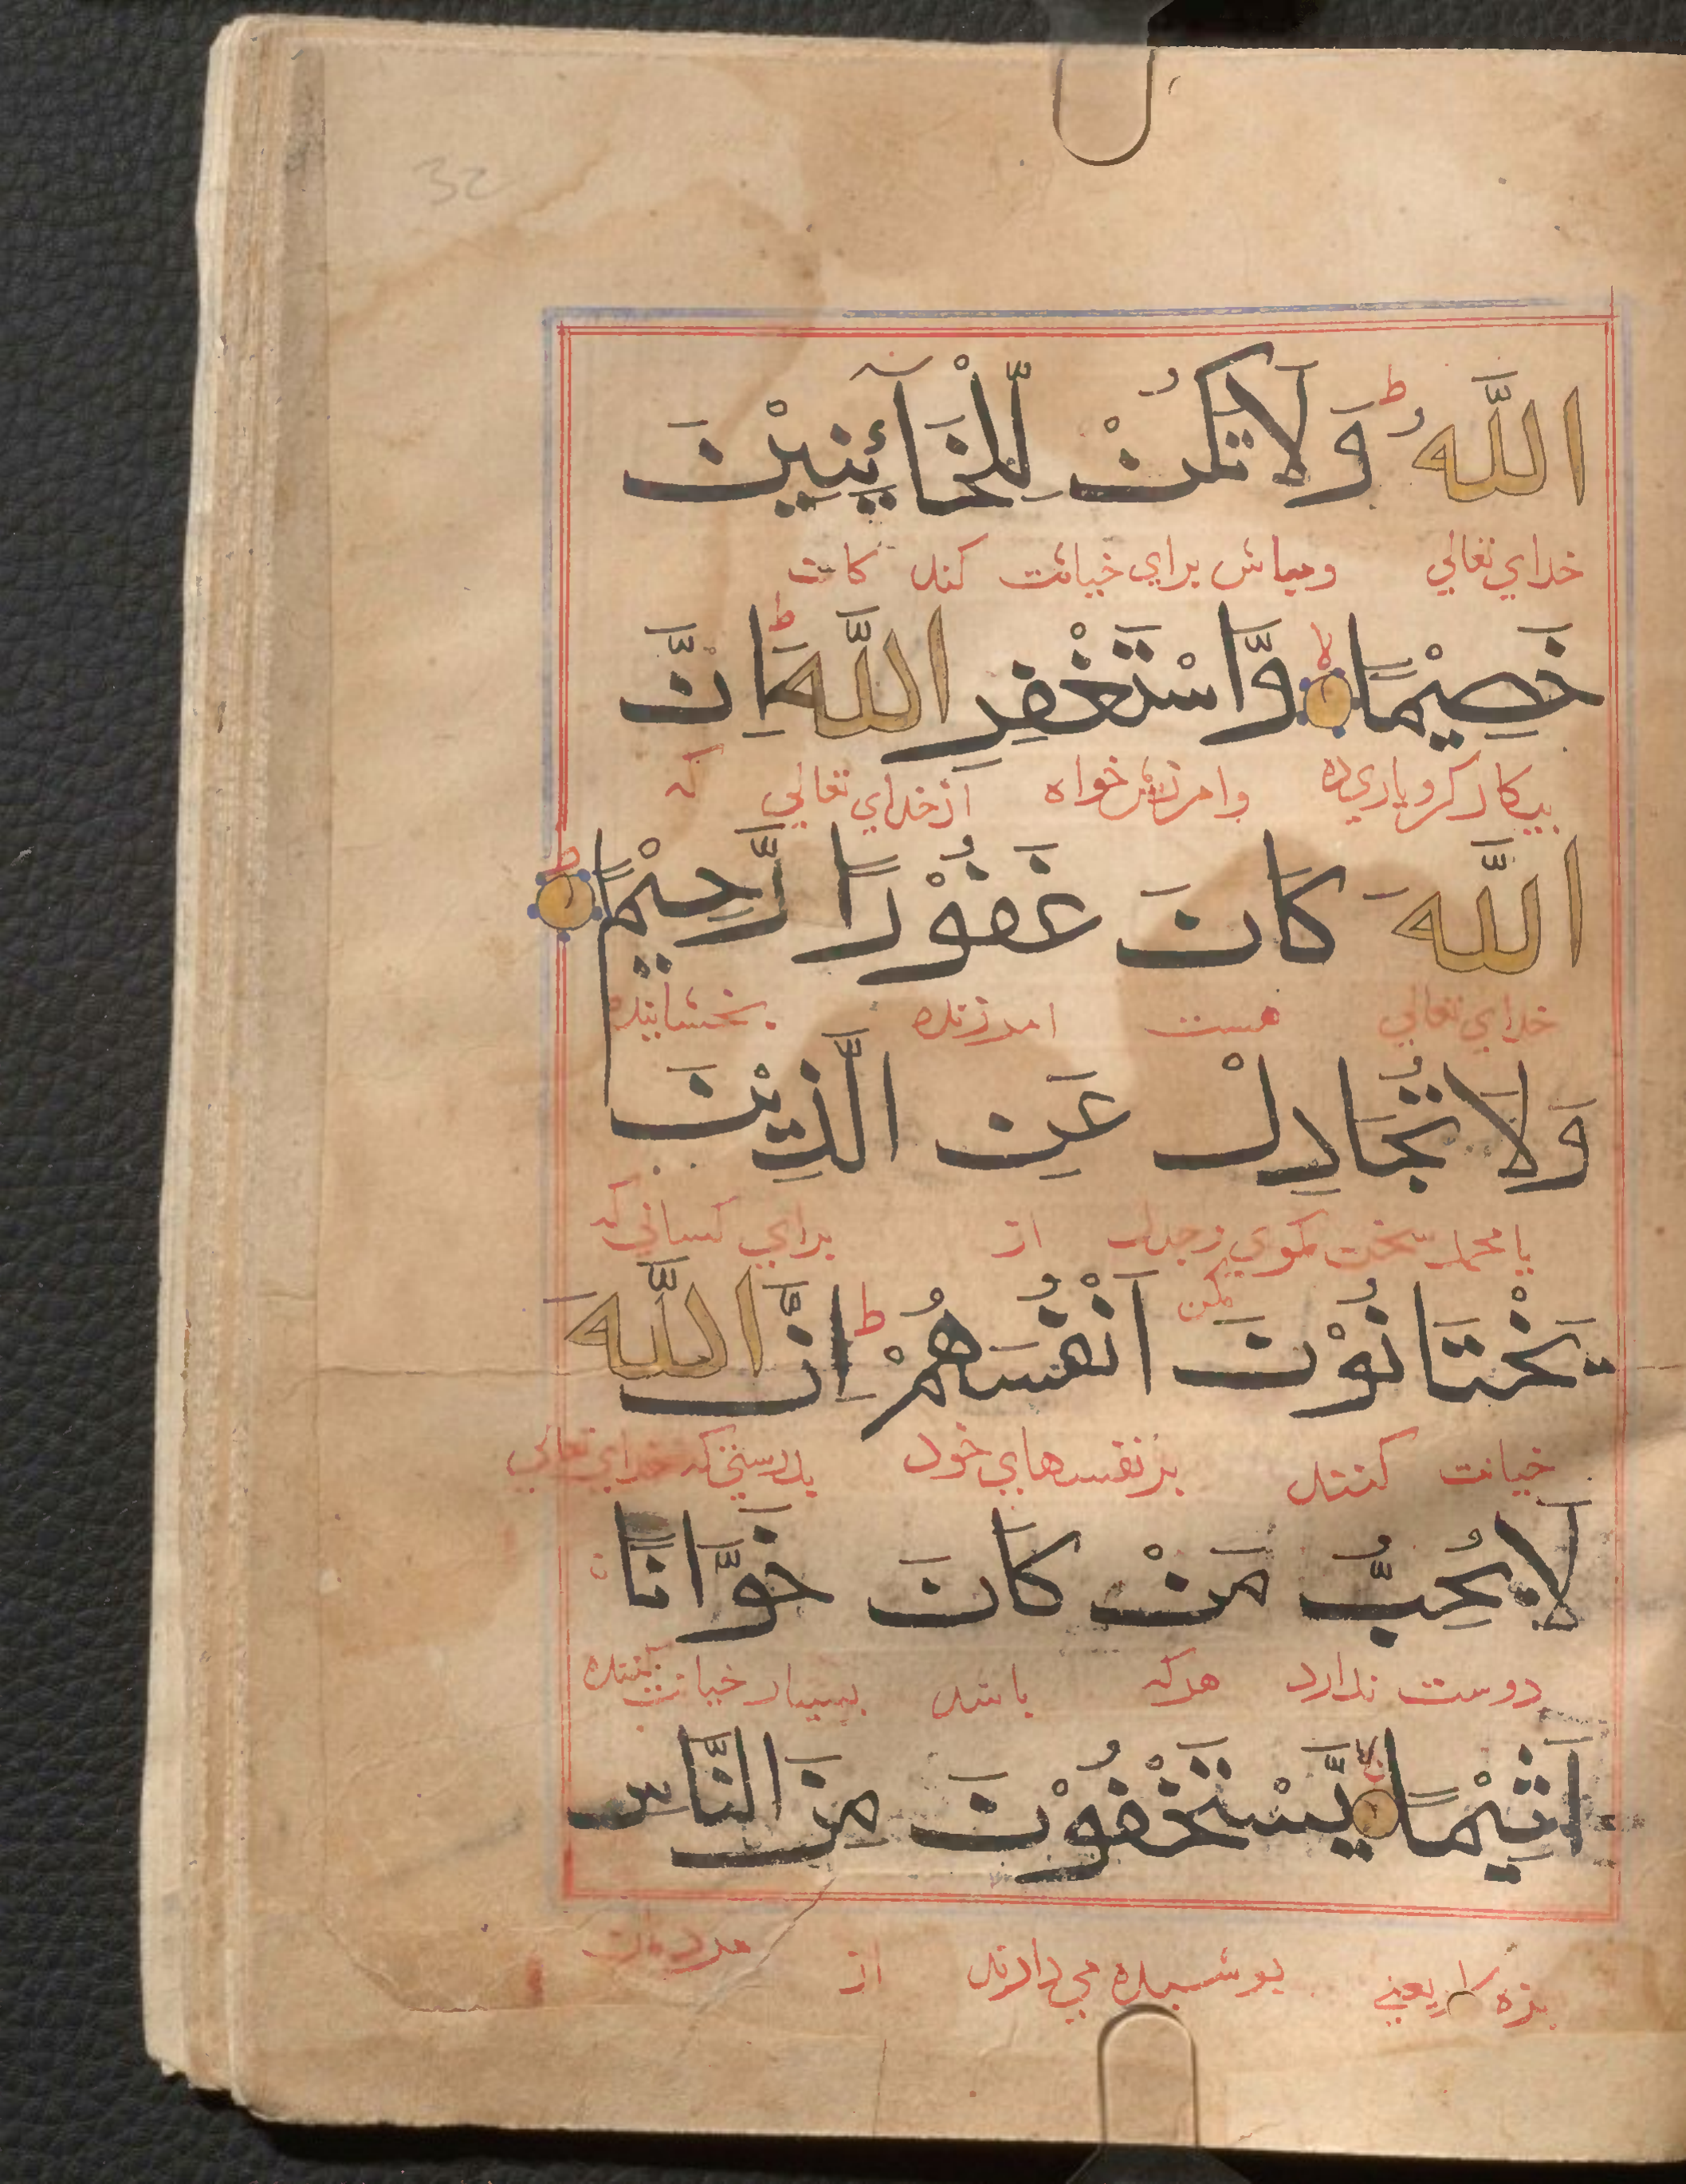 32
اللَّهُ ط وَلَا تَكُنْ لِّلْخَآئِنِيْنَ
خدای تعالی ومباش برای خیانت کند کان
خَصِيْمًا لا وَّاسْتَغْفِرِ اللَّهَ ط اِنَّ
بیکار کر ویاری ده وامرزش خواه از خدای تعالی که
اللَّهَ كَانَ غَفُوْرًا رَّحِيْمًا ط
خدای تعالی هست امرزنده بخشاینده
وَلَا تُجَادِلْ عَنِ الَّذِيْنَ
یا محمد سخت مکوی وجدل مکن از برای کسانی که
يَخْتَانُوْنَ اَنْفُسَهُمْ ط اِنَّ اللَّهَ
خیانت کنند بر نفسهای خود بدرستی که خدای تعالی
لَا يُحِبُّ مَنْ كَانَ خَوَّانًا
دوست ندارد هرکه باشد بسیار خیانت کننده
اَثِيْمًا لا يَّسْتَخْفُوْنَ مِنَ النَّاسِ
بزه کار یعنی پوشیده می دارند از مردمان